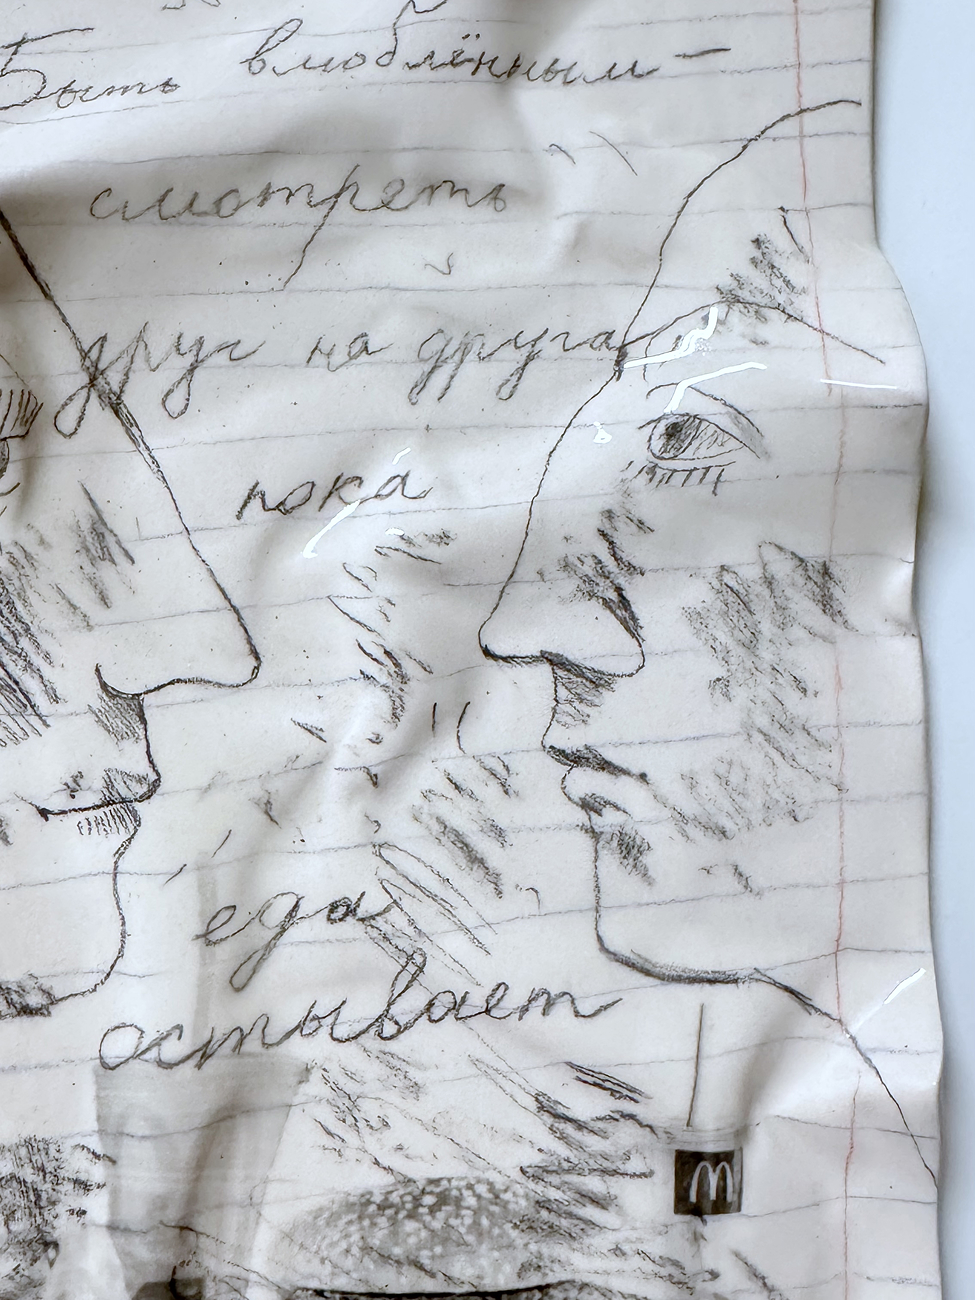 Быть влюблённым —
смотреть
друг на друга
пока
еда
остывает